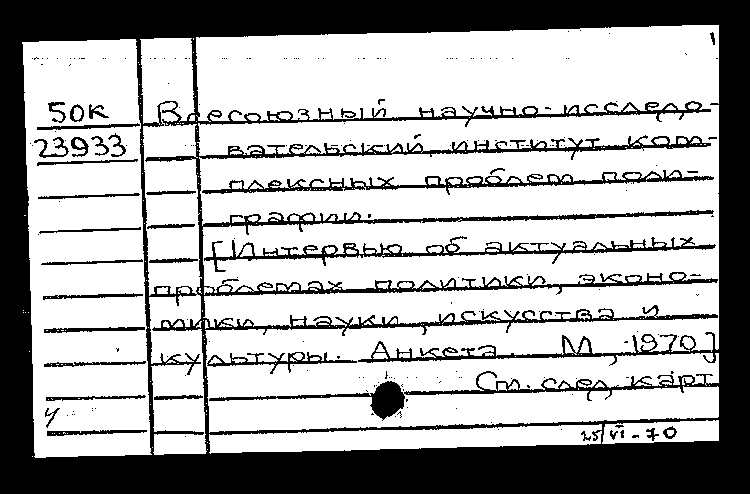 50к Всесоюзный научно-исследо-
23933 вательский институт ком-
плексных проблем поли-
графии.
[Интервью об актуальных
проблемах политики, эконо-
мики, науки, искусства и
культуры. Анкета. М., 1970]
См. след. карт
25/VI-70